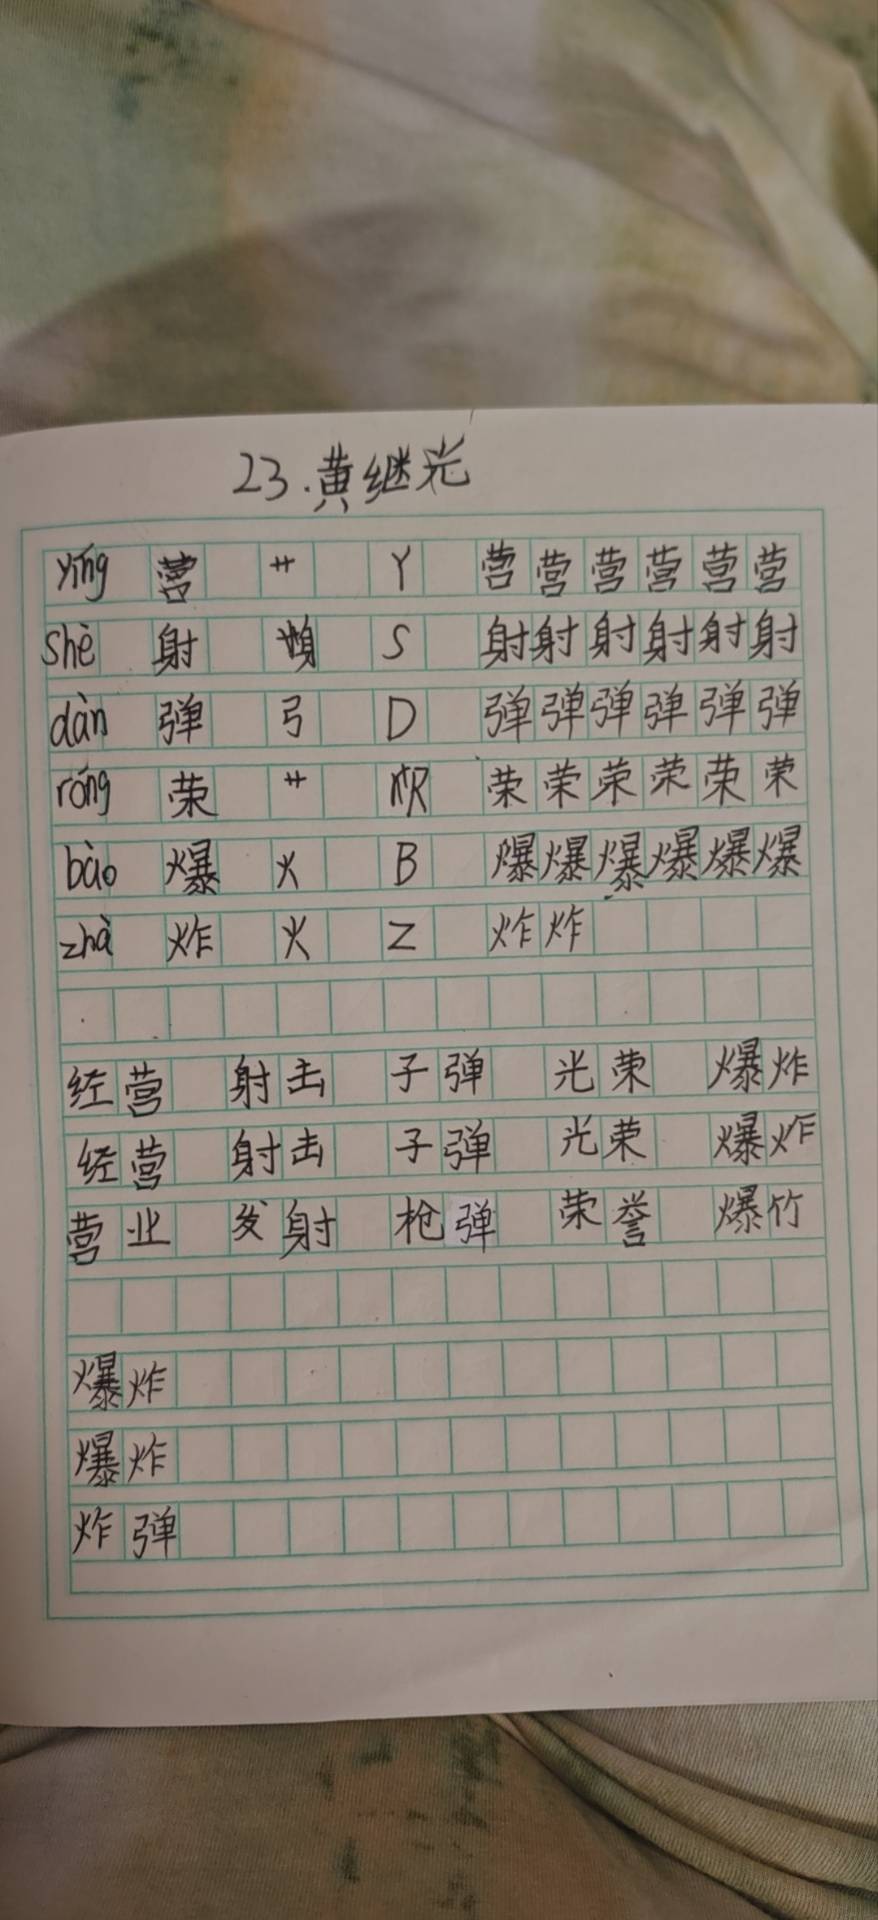 23.黄继光
yíng 营 艹 Y 营营营营营营
shè 射 身 S 射射射射射射
dàn 弹 弓 D 弹弹弹弹弹弹
róng 荣 艹 R 荣荣荣荣荣荣
bào 爆 火 B 爆爆爆爆爆爆
zhà 炸 火 Z 炸炸
经营 射击 子弹 光荣 爆炸
经营 射击 子弹 光荣 爆炸
营业 发射 枪弹 荣誉 爆竹
爆炸
爆炸
炸弹